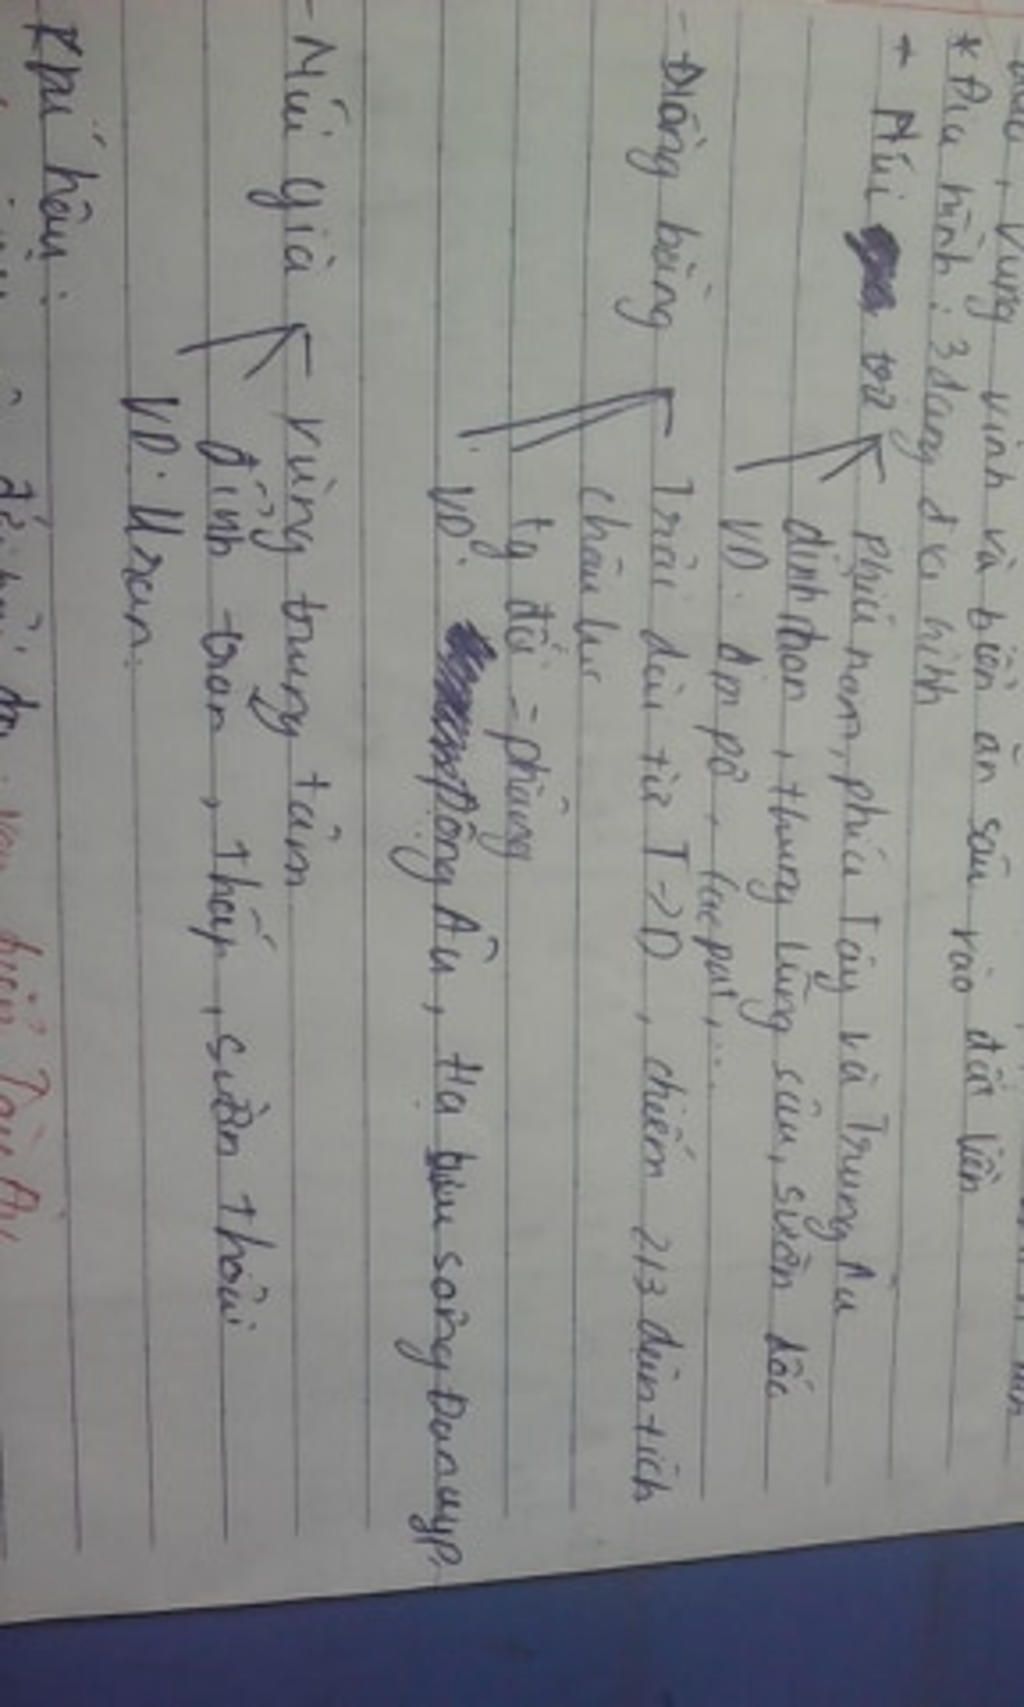 vùng vịnh và biển ăn sâu vào đất liền
* Địa hình: 3 dạng địa hình
+ Núi trẻ phía nam, phía Tây và Trung Âu
đỉnh nhọn, thung lũng sâu, sườn dốc
VD: Anpơ, Cacpat,...
- Đồng bằng Trải dài từ T->Đ, chiếm 2/3 diện tích
châu lục
tg đối - phẳng
VD: Đông Âu, Hạ lưu sông Đanuyp.
- Núi già vùng trung tâm
đỉnh tròn, thấp, sườn thoải
VD: Uran.
Khí hậu: